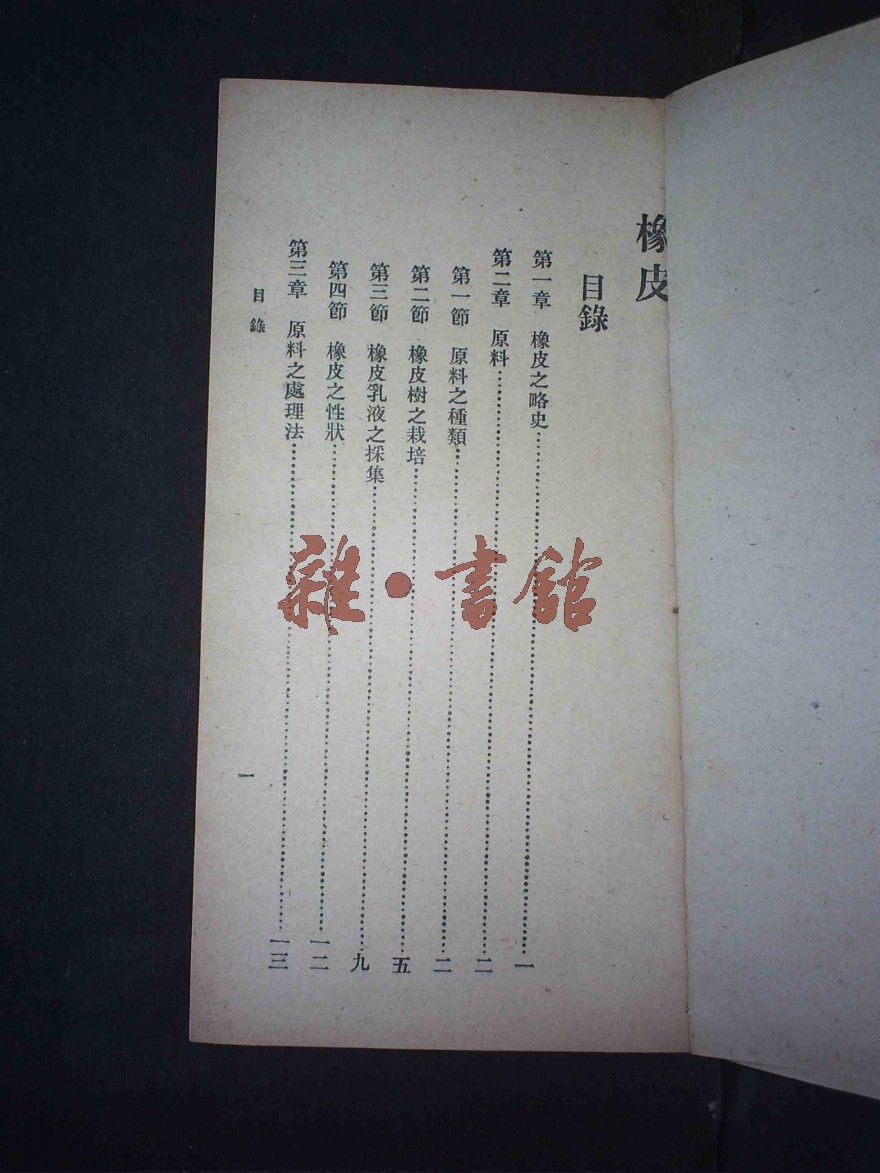 橡皮
目錄
第一章　橡皮之略史……一
第二章　原料……二
第一節　原料之種類……二
第二節　橡皮樹之栽培……五
第三節　橡皮乳液之採集……九
第四節　橡皮之性狀……一二
第三章　原料之處理法……一三
目錄
一
雜·書館